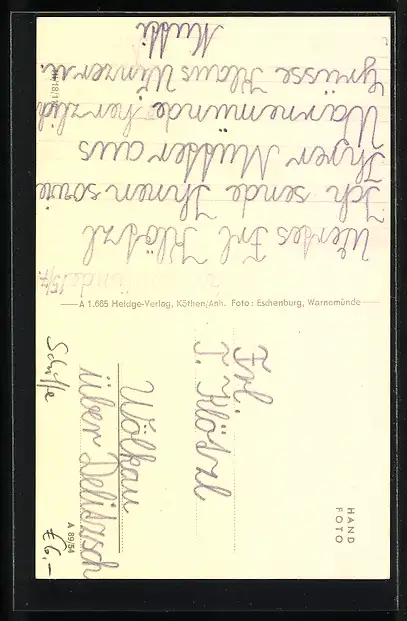 Wertes Frl Klötzl
Ich sende Ihnen sowie
Ihrer Mutter aus
Warnemünde herzlich
Grüsse Klaus Winzer u.
Mutti
A 1.665 Heldge-Verlag, Köthen/Anh. Foto: Eschenburg, Warnemünde
Frl.
T. Klötzl
Wölkau
über Delitzsch
HAND
FOTO
A 89/54
Schiffe
€6,-